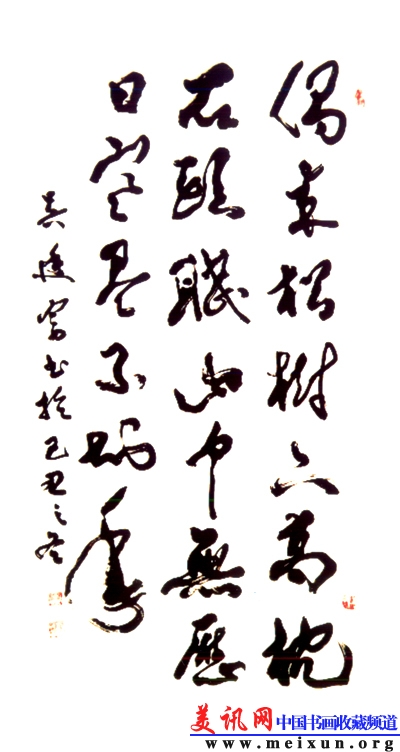 偶来松樹下高枕
石頭眠山中無歷
日寒尽不知年
书於己丑之冬
美讯网中国书画收藏频道
www.meixun.org